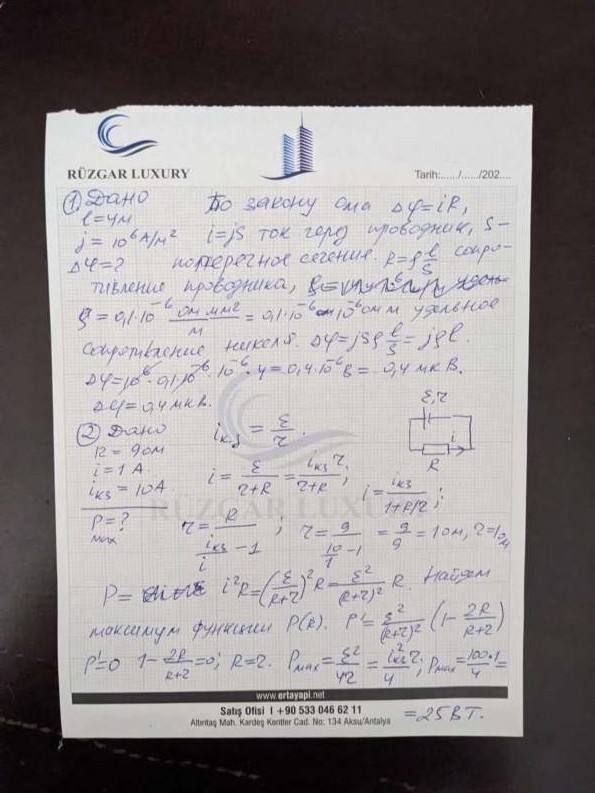 RÜZGAR LUXURY
Tarih:...../...../202....
① Дано По закону ома Δφ=iR,
l=4м
j=10⁶А/м² i=jS ток через проводник, S-
Δφ=? поперечное сечение. R=ρ l/S сопро-
тивление проводника,
ρ=0,1·10⁻⁶ ом мм²/м = 0,1·10⁻⁶ 10⁻⁶ ом м удельное
сопротивление никеля. Δφ=jSρ l/S=jρl.
Δφ=10⁶·0,1·10⁻⁶·10⁻⁶·4=0,4·10⁻⁶В=0,4 мкВ.
Δφ=0,4 мкВ.
② Дано iкз=ε/r.
ε,r
i
R
R=9ом
i=1А
iкз=10А
i=ε/(r+R)=iкз r/(r+R); i=iкз/(1+R/r);
P=?
max
r=R/(iкз/i-1); r=9/(10/1-1)=9/9=1ом, r=1ом
P= i²R=(ε/(R+r))²R=ε²/(R+r)² R. Найдем
максимум функции P(R). P'=ε²/(R+r)² (1-2R/(R+r))
P'=0 1-2R/(R+r)=0; R=r. Pmax=ε²/4r=i²кз r/4; Pmax=100·1/4=
=25Вт.
RÜZGAR LUXURY
www.ertayapi.net
Satış Ofisi I +90 533 046 62 11
Altıntaş Mah. Kardeş Kentler Cad. No: 134 Aksu/Antalya